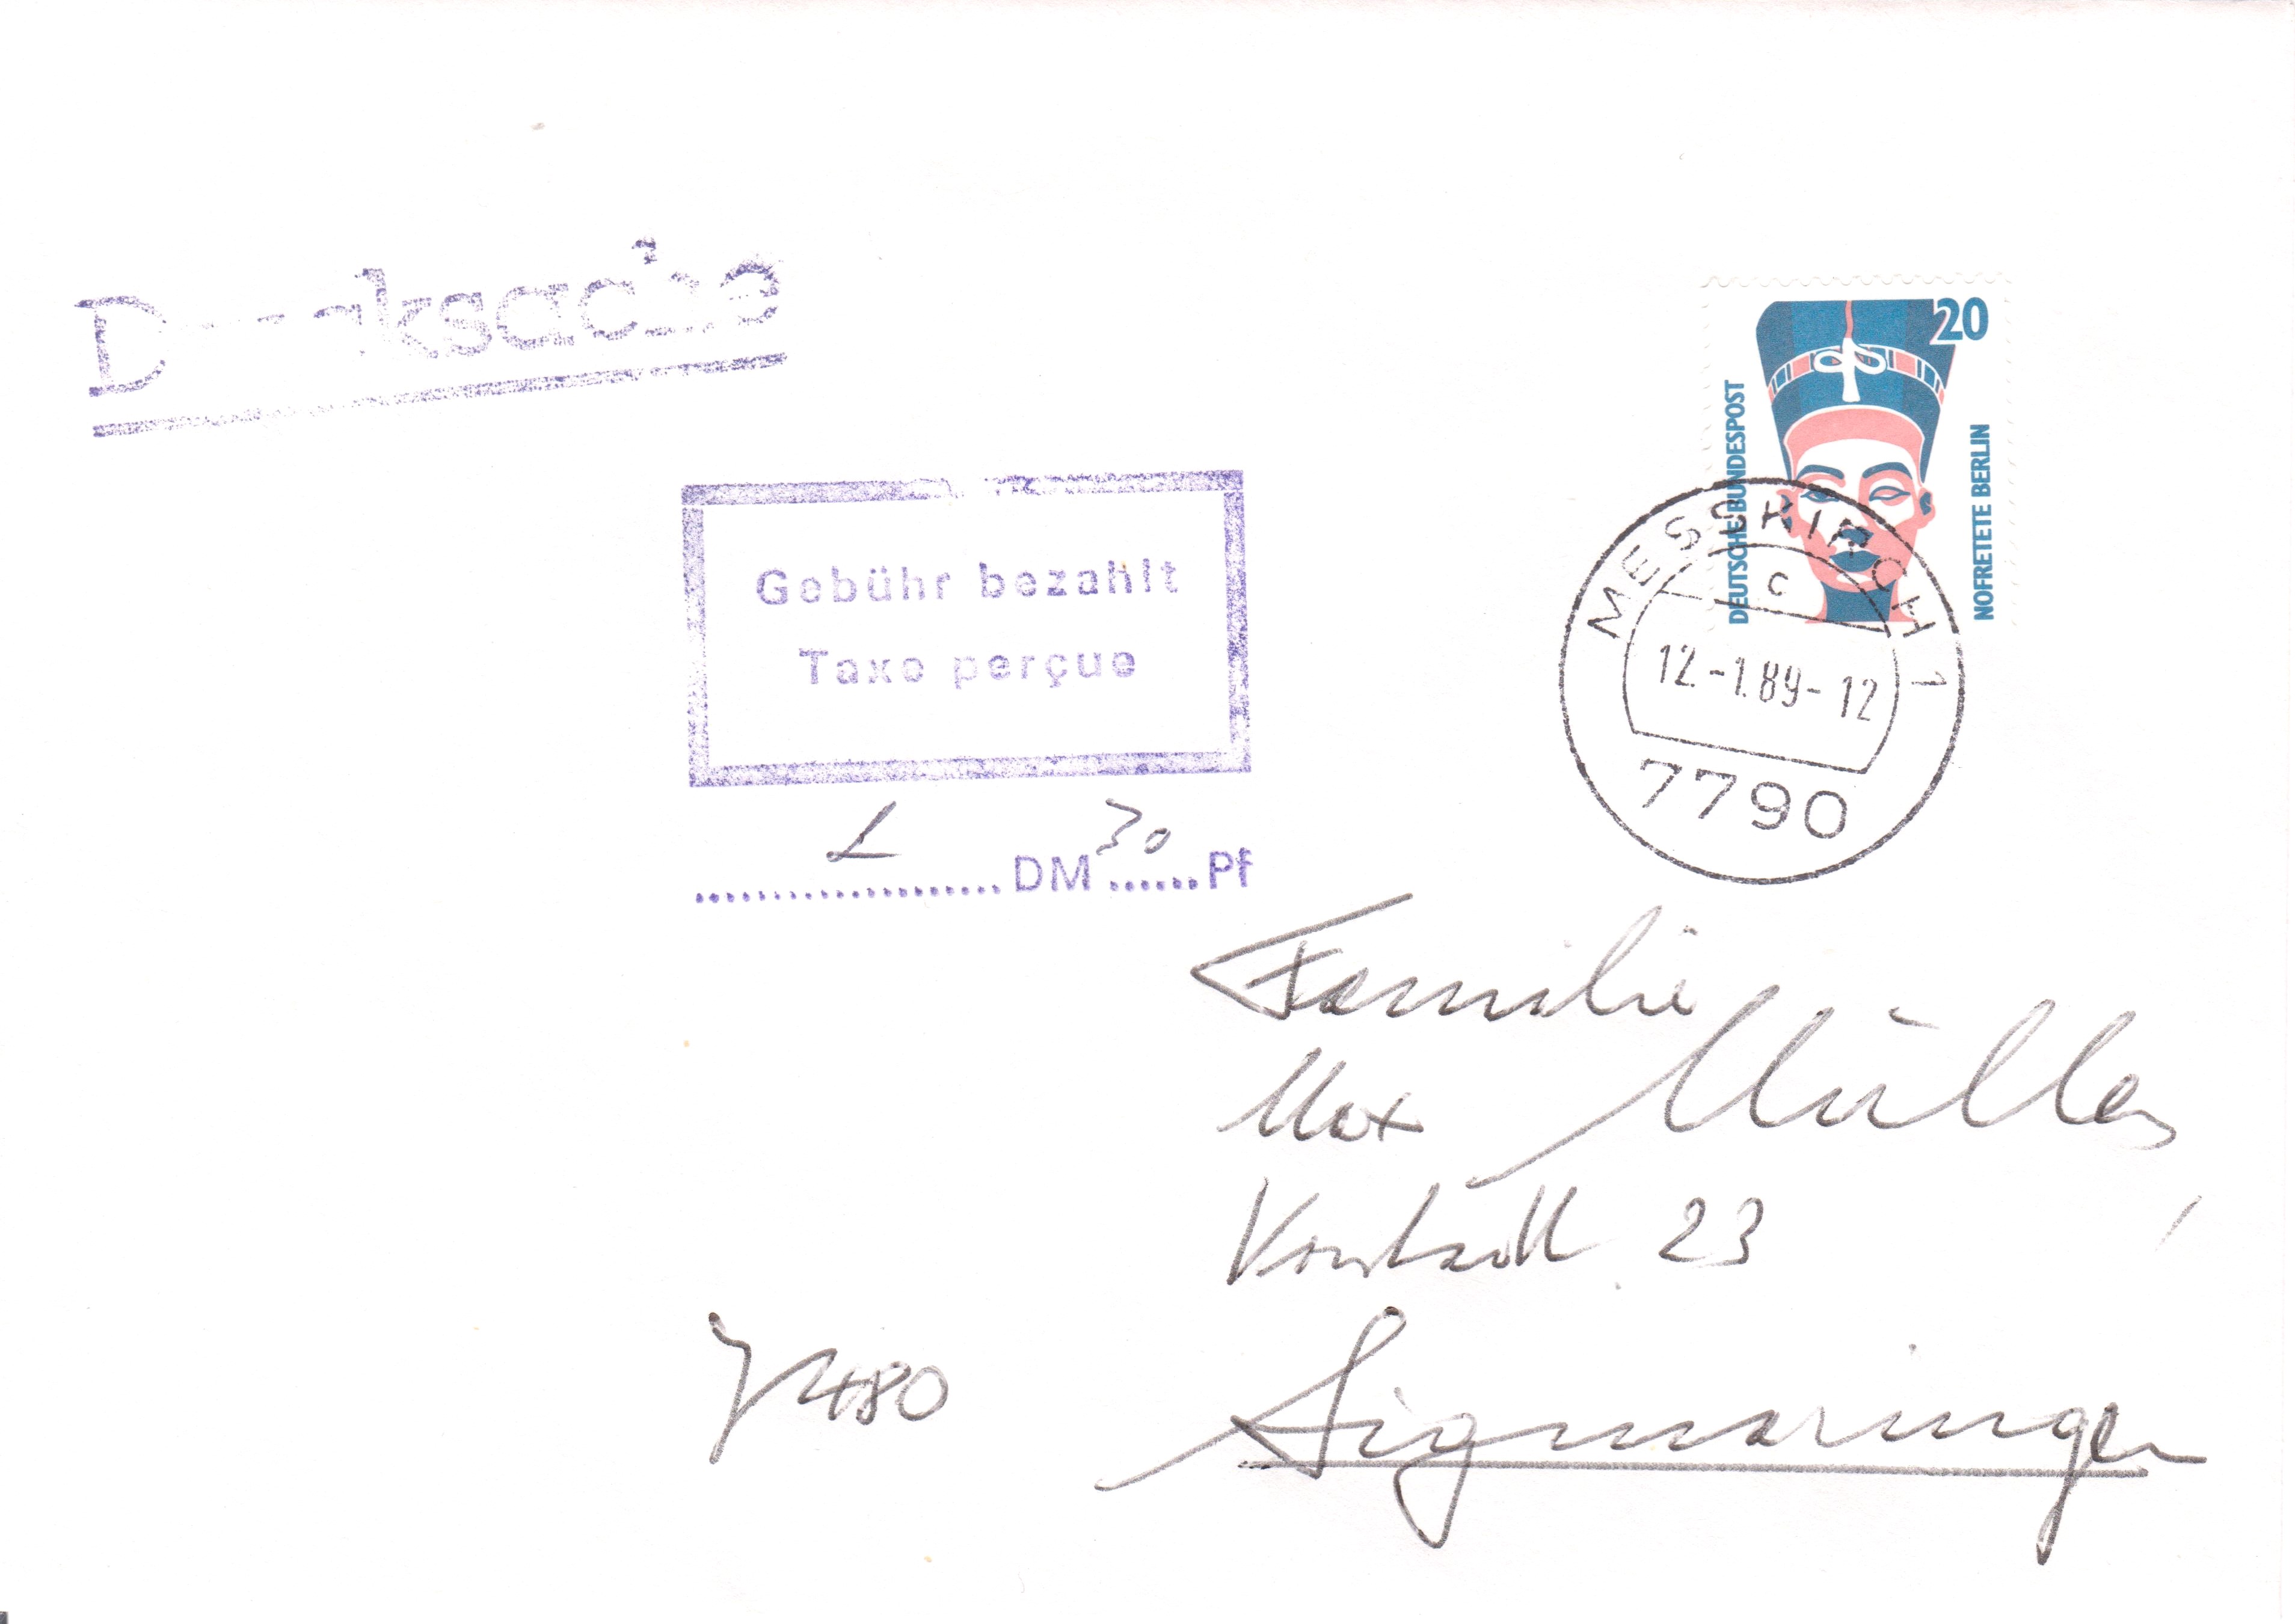 Drucksache
20
DEUTSCHE BUNDESPOST
NOFRETETE BERLIN
Gebühr bezahlt
Taxe perçue
MESSKIRCH 1
c
12.-1.89-12
7790
DM 30 Pf
Familie
Max Müller
Vorstadt 23
7480 Sigmaringen